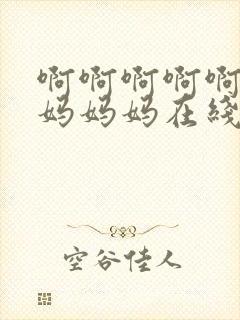 啊啊啊啊啊
妈妈妈在线
空谷佳人